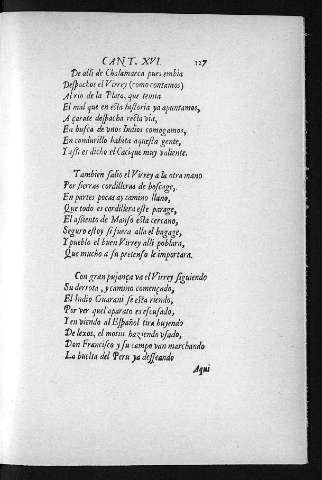 CANT. XVI. 127
De alli de Chalamarca pues embia
Despachos el Virrey (como contamos)
Al rio de la Plata, que temia
El mal que en esta historia ya apuntamos,
A çarate despacha recta via,
En busca de vnos Indios comogamos,
En condurillo habita aquesta gente,
Y assi es dicho el Cacique muy valiente.
Tambien salio el Virrey a la otra mano
Por sierras cordilleras de boscage,
En partes pocas ay camino llano,
Que todo es cordillera este parage,
El assiento de Manso esta cercano,
Seguro estoy si fuera alla el bagage,
Y pueblo el buen Virrey alli poblara,
Que mucho a su pretenso le importara.
Con gran pujança va el Virrey siguiendo
Su derrota, y camino començado,
El Indio Guarani se esta riendo,
Por ver quel aparato es escusado,
Y en viendo al Español tira huyendo
De lexos, el motin haziendo vsado,
Don Francisco y su campo van marchando
La buelta del Peru ya desseando
Aqui